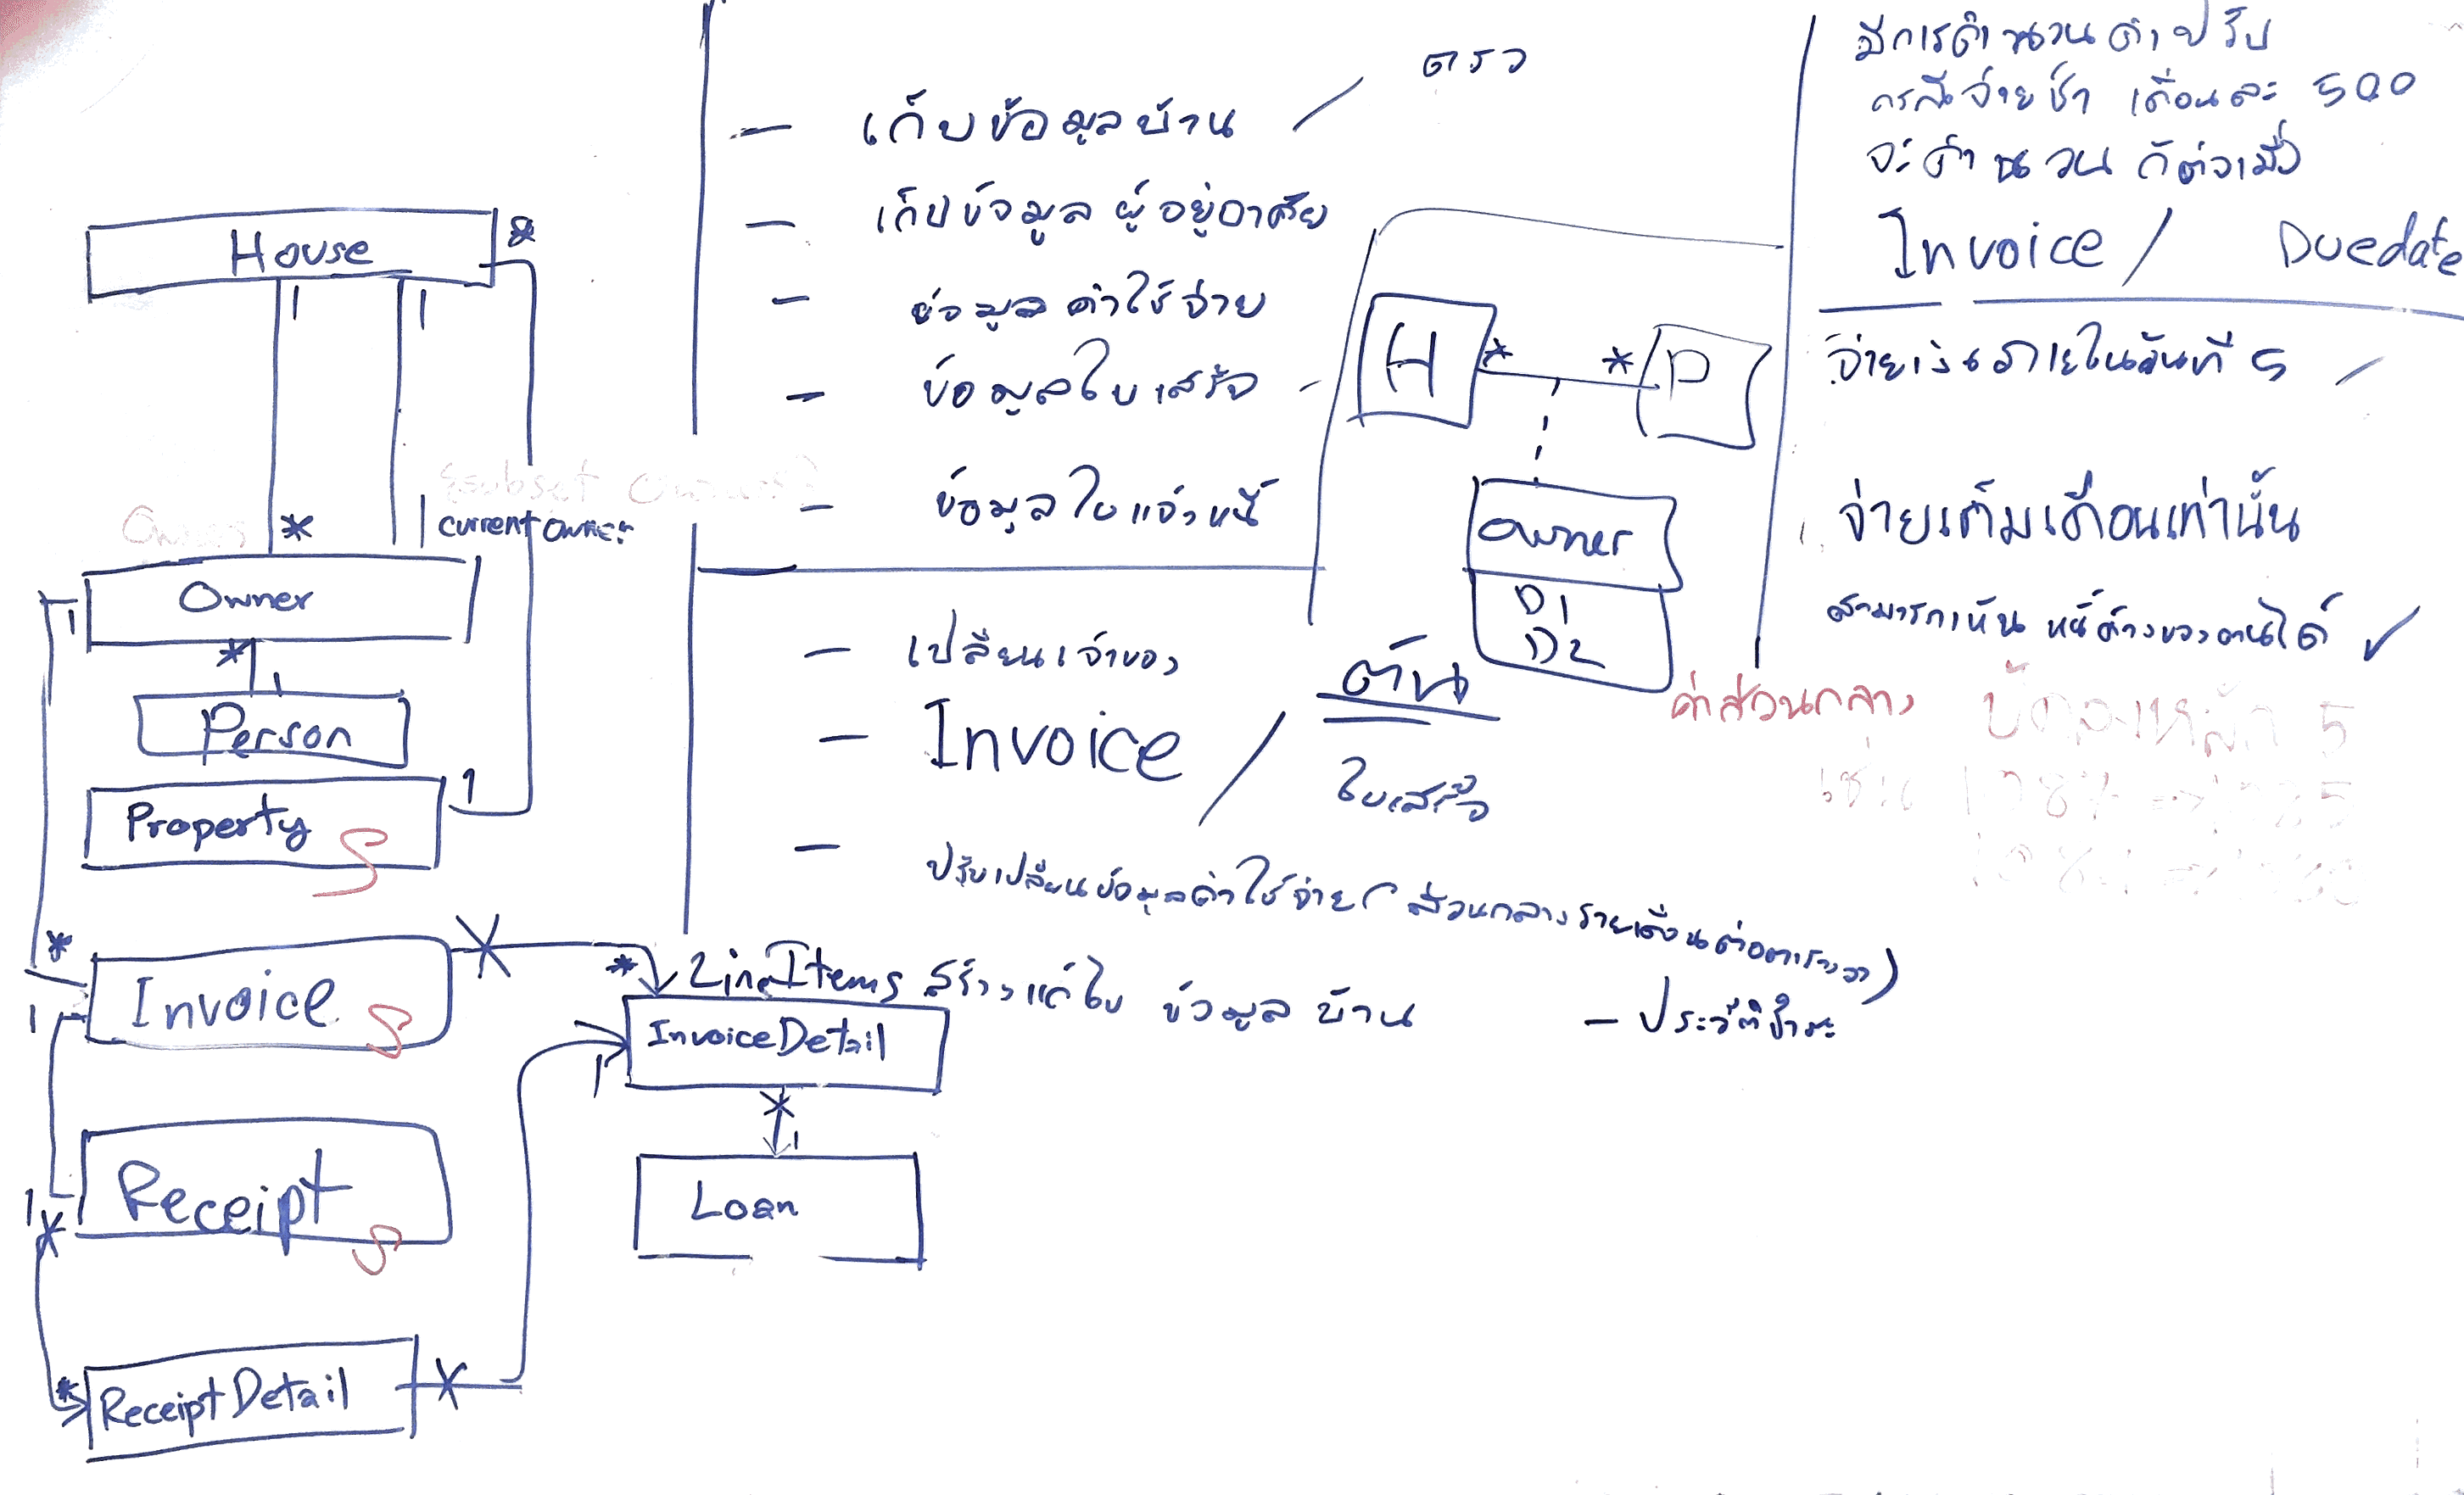 House
*
1
1
Owner
{subset Owner}
*
1
currentOwner
Owner
1
*
1
Person
Property
1
S
*
Invoice
S
1
*
LineItems
InvoiceDetail
1
*
1
Loan
1
Receipt
S
*
ReceiptDetail
ตรว
- เก็บข้อมูลบ้าน /
- เก็บข้อมูลผู้อยู่อาศัย
- ข้อมูลค่าใช้จ่าย
- ข้อมูลใบเสร็จ -
- ข้อมูลใบแจ้งหนี้
- เปลี่ยนเจ้าของ
- Invoice / ใบเสร็จ
ต้น
- ปรับเปลี่ยนข้อมูลค่าใช้จ่าย (ส่วนกลางรายเดือนต่อตารางวา)
สร้างแก้ไข ข้อมูลบ้าน
- ประวัติชำระ
H
*
*
P
owner
D1
D2
มีการคำนวนค่าปรับ
กรณีจ่ายช้า เดือนละ 500
จะคำนวนก็ต่อเมื่อ
Invoice / Duedate
จ่ายเงินภายในวันที่ 5
จ่ายเต็มเดือนเท่านั้น
สามารถเห็น หนี้ค้างของตนได้ ✓
ค่าส่วนกลาง